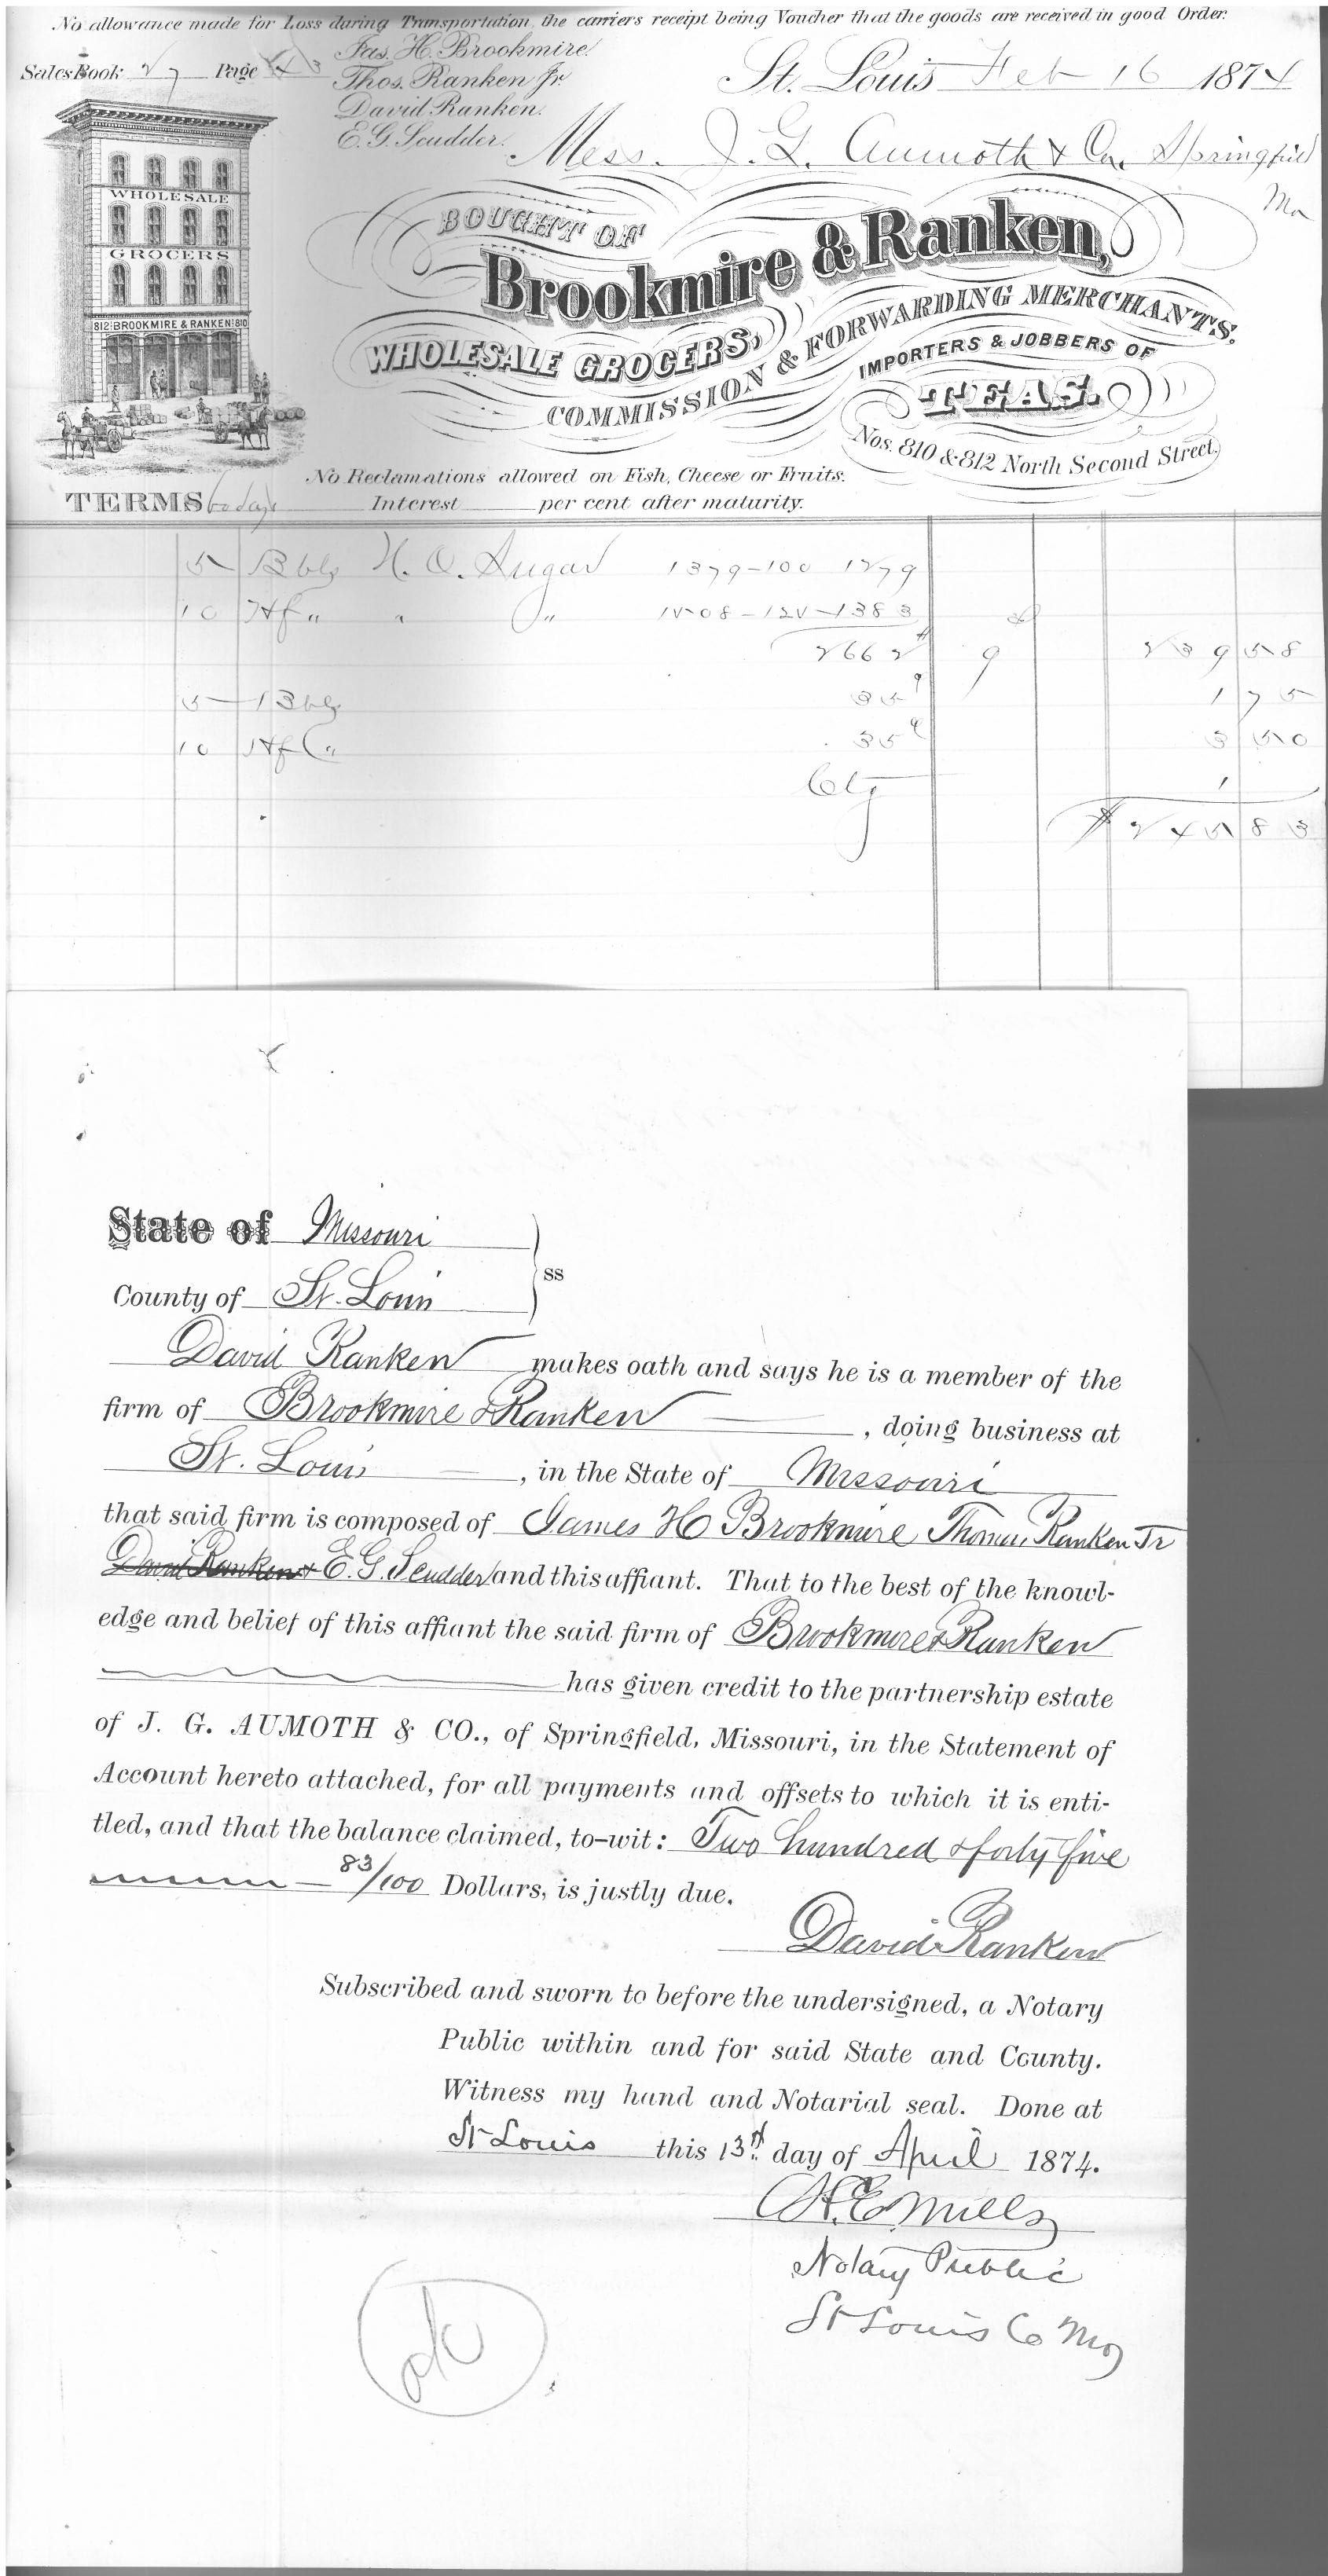 No allowance made for Loss during Transportation, the carriers receipt being Voucher that the goods are received in good Order.
Sales Book 27 Page
Jas. H. Brookmire.
Thos. Ranken Jr.
David Ranken.
E. G. Scudder.
St. Louis Feb 16 1874
Mess. J. G. Aumoth & Co. Springfield
Mo
WHOLESALE
GROCERS
812 BROOKMIRE & RANKEN 810
BOUGHT OF
Brookmire & Ranken,
WHOLESALE GROCERS,
COMMISSION & FORWARDING MERCHANTS.
IMPORTERS & JOBBERS OF
TEAS.
Nos. 810 & 812 North Second Street.
No Reclamations allowed on Fish, Cheese or Fruits.
TERMS 60 days Interest per cent after maturity.
5 Bbls N. O. Sugar 1379-100 1279
10 Hf " " " 1508-125-1383
2662 # 9 239 58
5 Bbls 35 1 75
10 Hf " 35 3 50
Ctg 1
$245 83
State of Missouri
County of St. Louis ss
David Ranken makes oath and says he is a member of the
firm of Brookmire & Ranken, doing business at
St. Louis, in the State of Missouri
that said firm is composed of James H Brookmire Thomas Ranken Jr
David Ranken & E. G. Scudder and this affiant. That to the best of the knowl-
edge and belief of this affiant the said firm of Brookmire & Ranken
has given credit to the partnership estate
of J. G. AUMOTH & CO., of Springfield, Missouri, in the Statement of
Account hereto attached, for all payments and offsets to which it is enti-
tled, and that the balance claimed, to-wit: Two hundred & forty five
83/100 Dollars, is justly due.
David Ranken
Subscribed and sworn to before the undersigned, a Notary
Public within and for said State and County.
Witness my hand and Notarial seal. Done at
St Louis this 13th day of April 1874.
H. E. Mills
Notary Public
St Louis Co Mo
ok